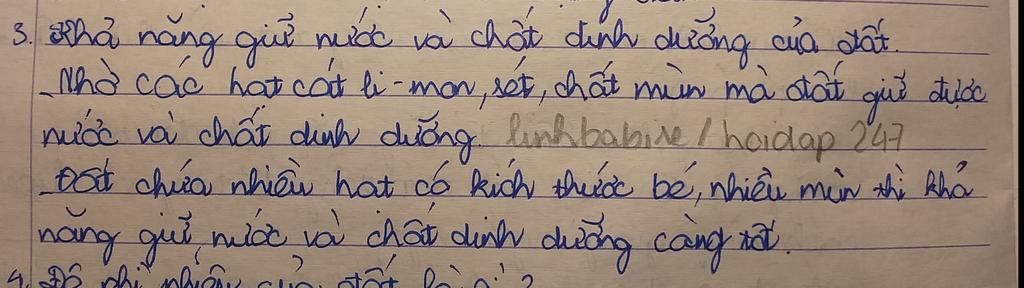 3. Khả năng giữ nước và chất dinh dưỡng của đất.
_Nhờ các hạt cát li-mon, sét, chất mùn mà đất giữ được
nước và chất dinh dưỡng. linhbabive/hoidap 247
_Đất chứa nhiều hạt có kích thước bé, nhiều mùn thì khả
năng giữ nước và chất dinh dưỡng càng tốt.
4. Độ phì nhiêu của đất là gì?